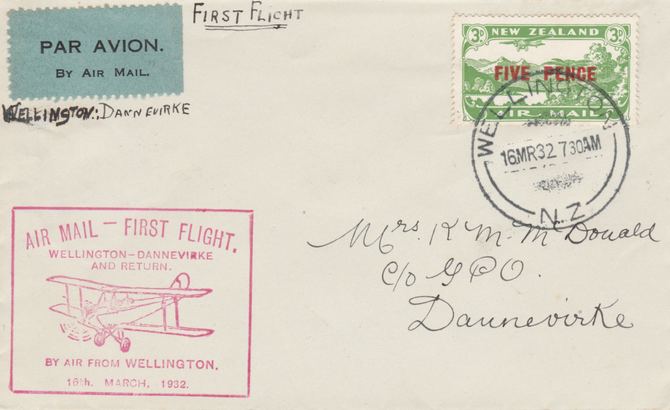 FIRST FLIGHT
PAR AVION.
BY AIR MAIL.
WELLINGTON: DANNEVIRKE
3D NEW ZEALAND 3D
FIVE PENCE
AIR MAIL
WELLINGTON
16MR32 730AM
N.Z
AIR MAIL — FIRST FLIGHT.
WELLINGTON—DANNEVIRKE
AND RETURN.
BY AIR FROM WELLINGTON.
16th. MARCH, 1932.
Mrs. K M. McDonald
c/o G P O.
Dannevirke